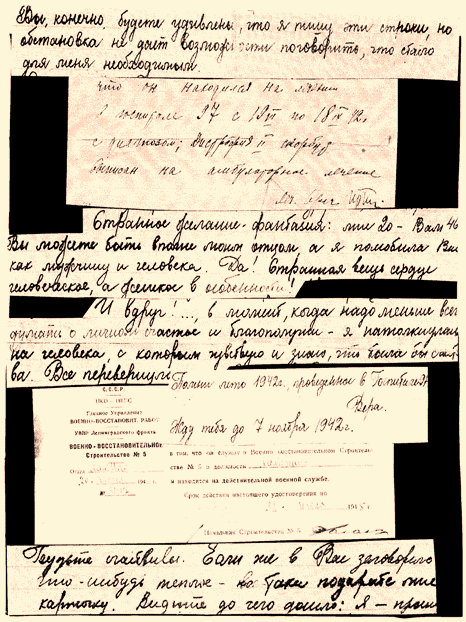 Вы, конечно, будете удивлены, что я пишу эти строки, но
обстановка не дает возможности поговорить, что стало
для меня необходимым.
что он находился на лечении
в госпитале 97 с 19 по 18 42.
с диагнозом: Дистрофия II скорбут
выписан на амбулаторное лечение
Странное желание-фантазия: мне 20 - Вам 46
Вы можете быть вполне моим отцом, а я полюбила Вас
как мужчину и человека. Да! Странная вещь сердце
человеческое, а женское в особенности!
И вдруг!..., в момент, когда надо меньше всего
думать о личном счастье и благополучии - я натолкнулась
на человека, с которым чувствую и знаю, что была бы счастли-
ва. Все перевернул
Помни лето 1942г. проведенное в Госпитале
Вера.
Жду тебя до 7 ноября 1942г.
С С С Р
Главное Управление
ВОЕННО-ВОССТАНОВИТ. РАБОТ
УВВР Ленинградского фронта
ВОЕННО-ВОССТАНОВИТЕЛЬНОЕ
Строительство № 5
в том, что он служит в Военно восстановительном Строитель-
стве № 5 в должности
и находится на действительной военной службе.
Срок действия настоящего удостоверения по
Начальник Строительства № 5
Будьте счастливы. Если же в Вас заговорило
что-нибудь теплое - таки подарите мне
карточку. Видите до чего дошло: Я - прошу